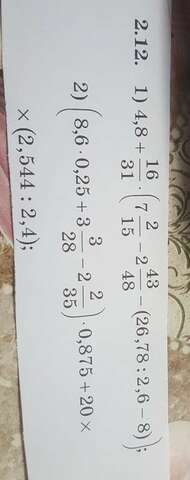 2.12. 1) 4,8 + 16/31 · (7 2/15 − 2 43/48 − (26,78 : 2,6 − 8));
2) (8,6 · 0,25 + 3 3/28 − 2 2/35) · 0,875 + 20 ×
× (2,544 : 2,4);